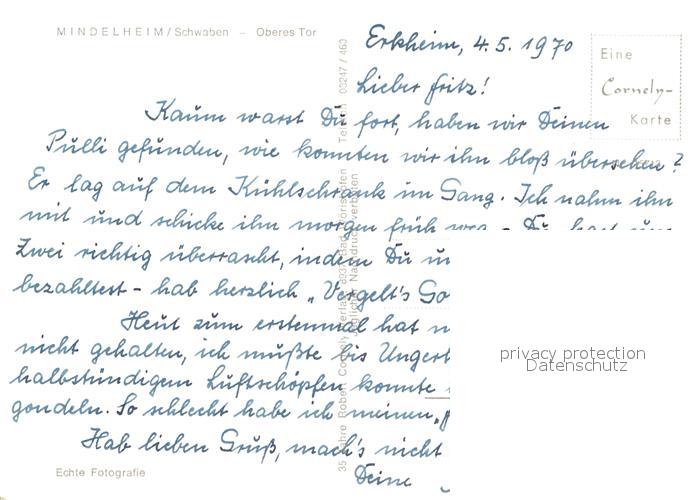 MINDELHEIM/Schwaben - Oberes Tor
Eine
Cornely-
Karte
Erkheim, 4.5.1970
Lieber Fritz!
Kaum warst Du fort, haben wir Deinen
Pulli gefunden, wie konnten wir ihn bloß übersehen?
Er lag auf dem Kühlschrank im Gang. Ich nahm ihn
mit und schicke ihn morgen früh weg - Du hast uns
Zwei richtig überrascht, indem Du
bezahltest - hab herzlich „Vergelt's
Heut zum erstenmal hat
nicht gehalten, ich mußte bis
halbstündigem Luftschöpfen konnte
gondeln. So schlecht habe ich meinen
Hab lieben Gruß, mach's nicht
Deine
35 Jahre Robert Cornely Verlag 8939 Bad Wörishofen Telefon 08247 / 460
Jeglicher Nachdruck verboten
Echte Fotografie
privacy protection
Datenschutz